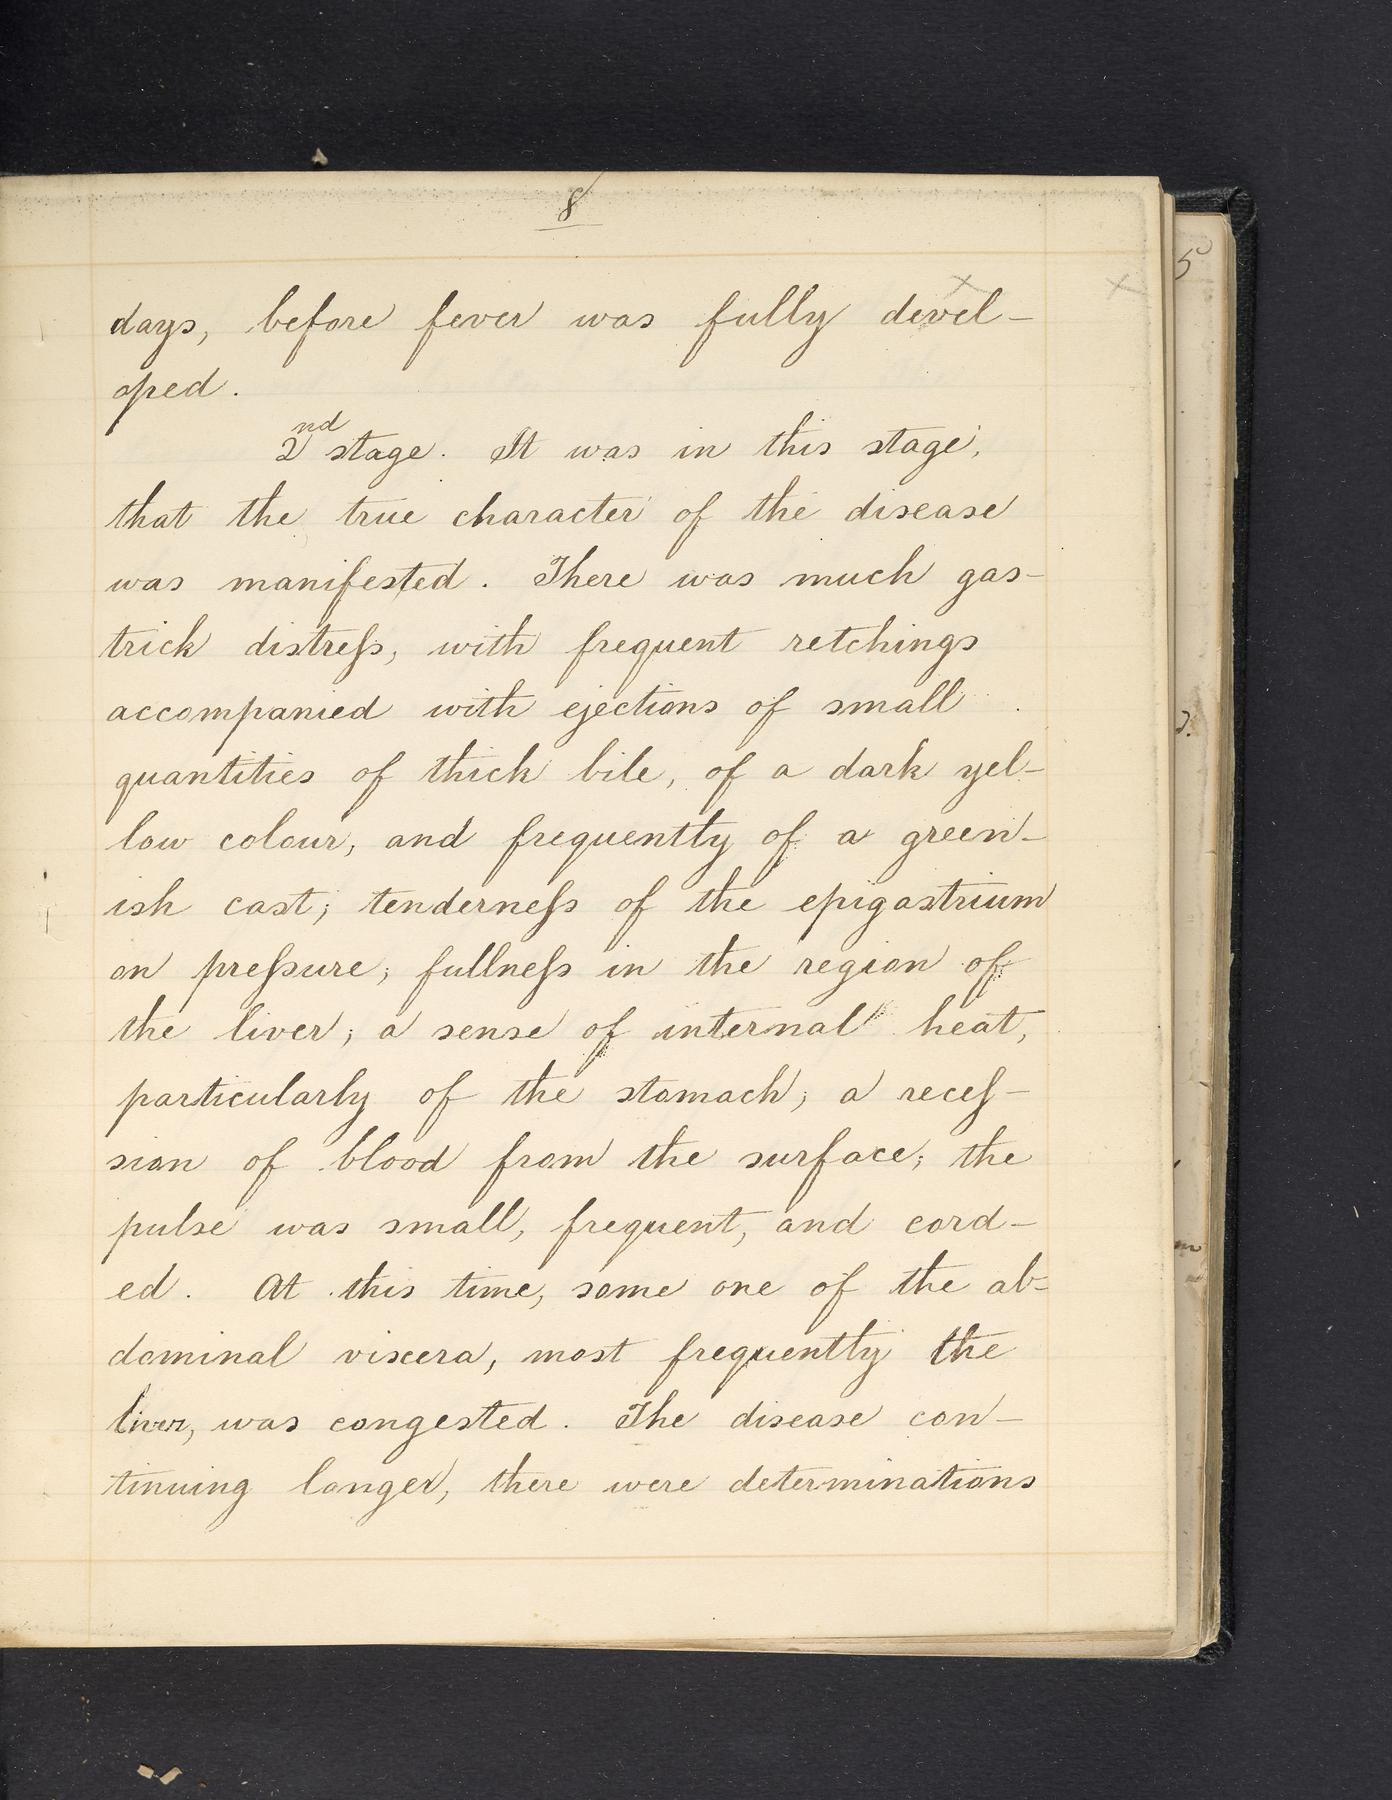 8
days, before fever was fully devel-
oped.
2nd stage. It was in this stage,
that the true character of the disease
was manifested. There was much gas-
trick distreſs, with frequent retchings
accompanied with ejections of small
quantities of thick bile, of a dark yel-
low colour, and frequently of a green-
ish cast; tenderneſs of the epigastrium
on preſsure; fullneſs in the region of
the liver; a sense of internal heat,
particularly of the stomach; a receſ-
sion of blood from the surface; the
pulse was small, frequent, and cord-
ed. At this time, some one of the ab-
dominal viscera, most frequently the
liver, was congested. The disease con-
tinuing longer, there were determinations
5